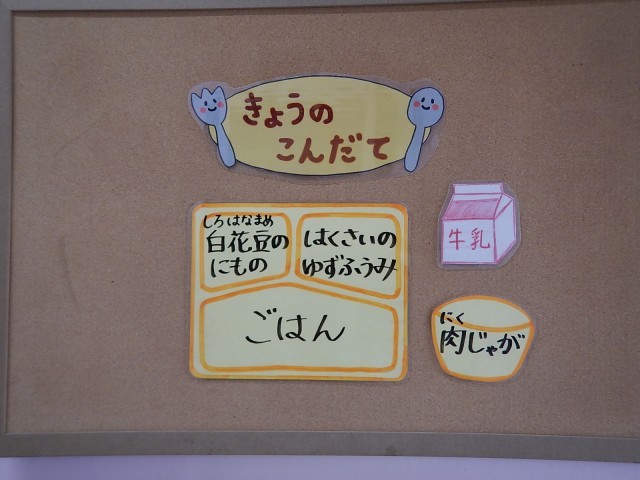 きょうの
こんだて
しろはなまめ
白花豆の
にもの
はくさいの
ゆずふうみ
ごはん
牛乳
にく
肉じゃが